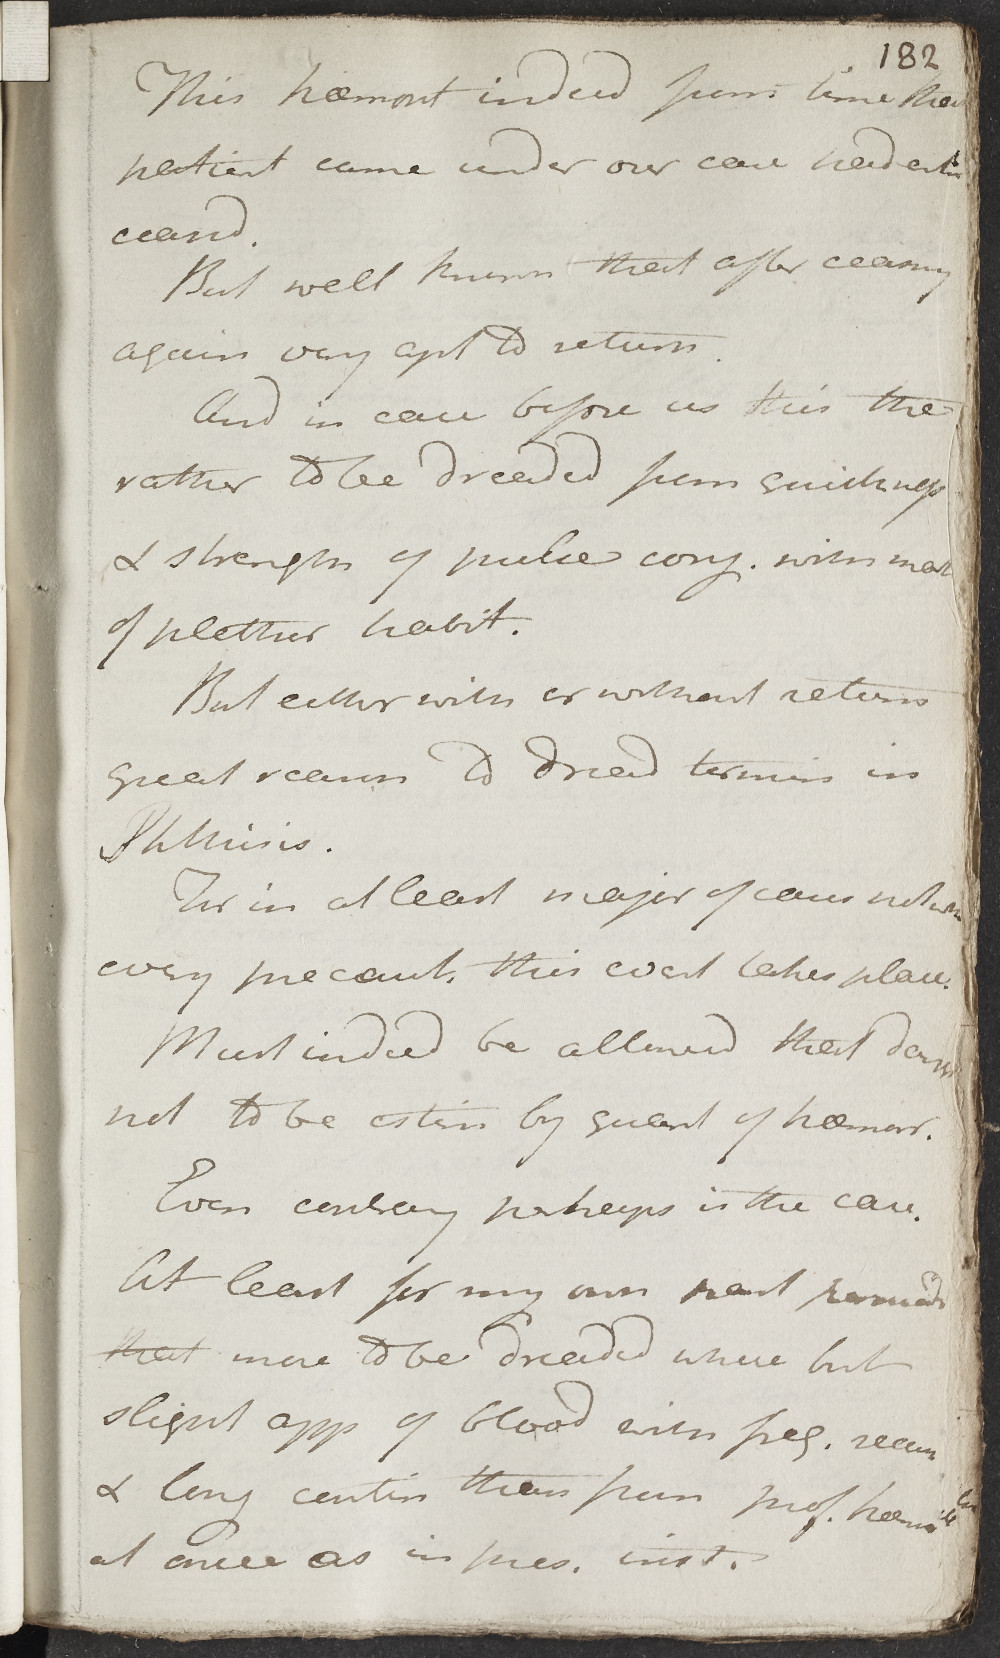 182
This hæmorr indeed from time that
patient came under our care had entir
ceased.
But well known that after ceasing
again very apt to return.
And in case before us this the
rather to be dreaded from quickness
& strength of pulse conj. with mark
of plethor habit.
But either with or without return
great reason to dread termin in
Phthisis.
For in at least major of cases notw
every precaut. this event takes place.
Must indeed be allowed that danger
not to be estim by quant of hæmorr.
Even contrary perhaps is the case.
At least for my own part
that more to be dreaded where but
slight app of blood with freq. recurr
& long contin than from prof. hæmorr
at once as in pres. inst.